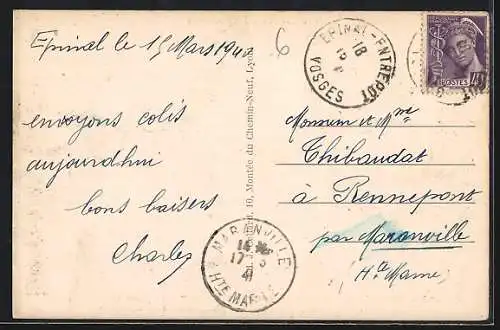 Epinal le 15 Mars 1941
6
EPINAL-ENTREPÔT
18
VOSGES
POSTES
envoyons colis
aujourdhui
bons baisers
Charles
10, Montée du Chemin-Neuf, Lyon
Monsieur et Mme
Thibaudat
à Rennepont
par Maranville
Hte Marne
MARANVILLE
14
17 - 3
41
HTE MARNE